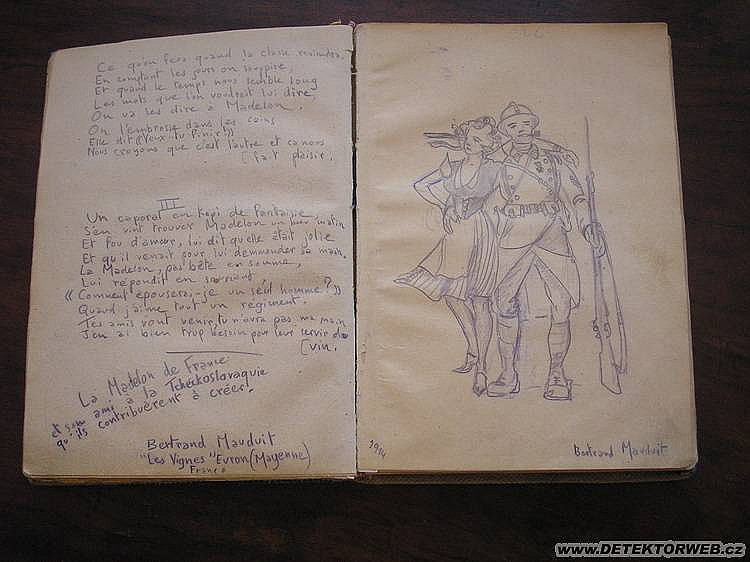 Ce qu'on fera quand la classe reviendra.
En comptant les jours on soupire
Et quand le temps nous semble long
Les mots que l'on voudrait lui dire,
On va les dire à Madelon.
On l'embrasse dans les coins
Elle dit "Veux-tu finir!"
Nous croyons que c'est l'autre et ça nous
[fait plaisir.
III
Un caporal en képi de fantaisie,
S'en vint trouver Madelon un beau matin
Et fou d'amour, lui dit qu'elle était jolie
Et qu'il venait pour lui demmander sa main.
La Madelon, pas bête en somme,
Lui répondit en souriant
"Comment épouserai-je un seul homme?"
Quand j'aime tout un régiment.
Tes amis vont venir, tu n'aura pas ma main
J'en ai bien trop besoin pour leur servir du
[vin.
La Madelon de France
et son ami à la Tchéckoslovaquie
qu'ils contribuèrent à créer!
Bertrand Mauduit
"Les Vignes" Evron (Mayenne)
France
1914
Bertrand Mauduit
www.DETEKTORWEB.cz